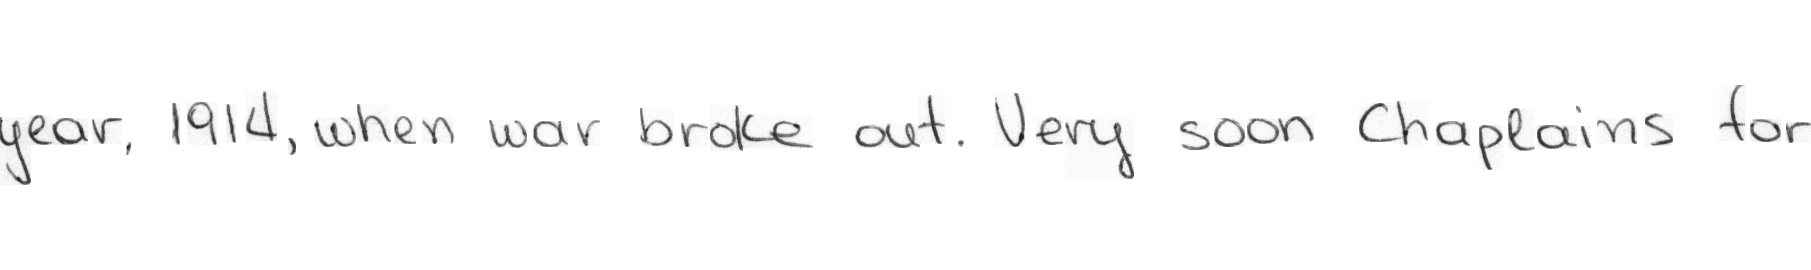 year, 1914, when war broke out. Very soon Chaplains for